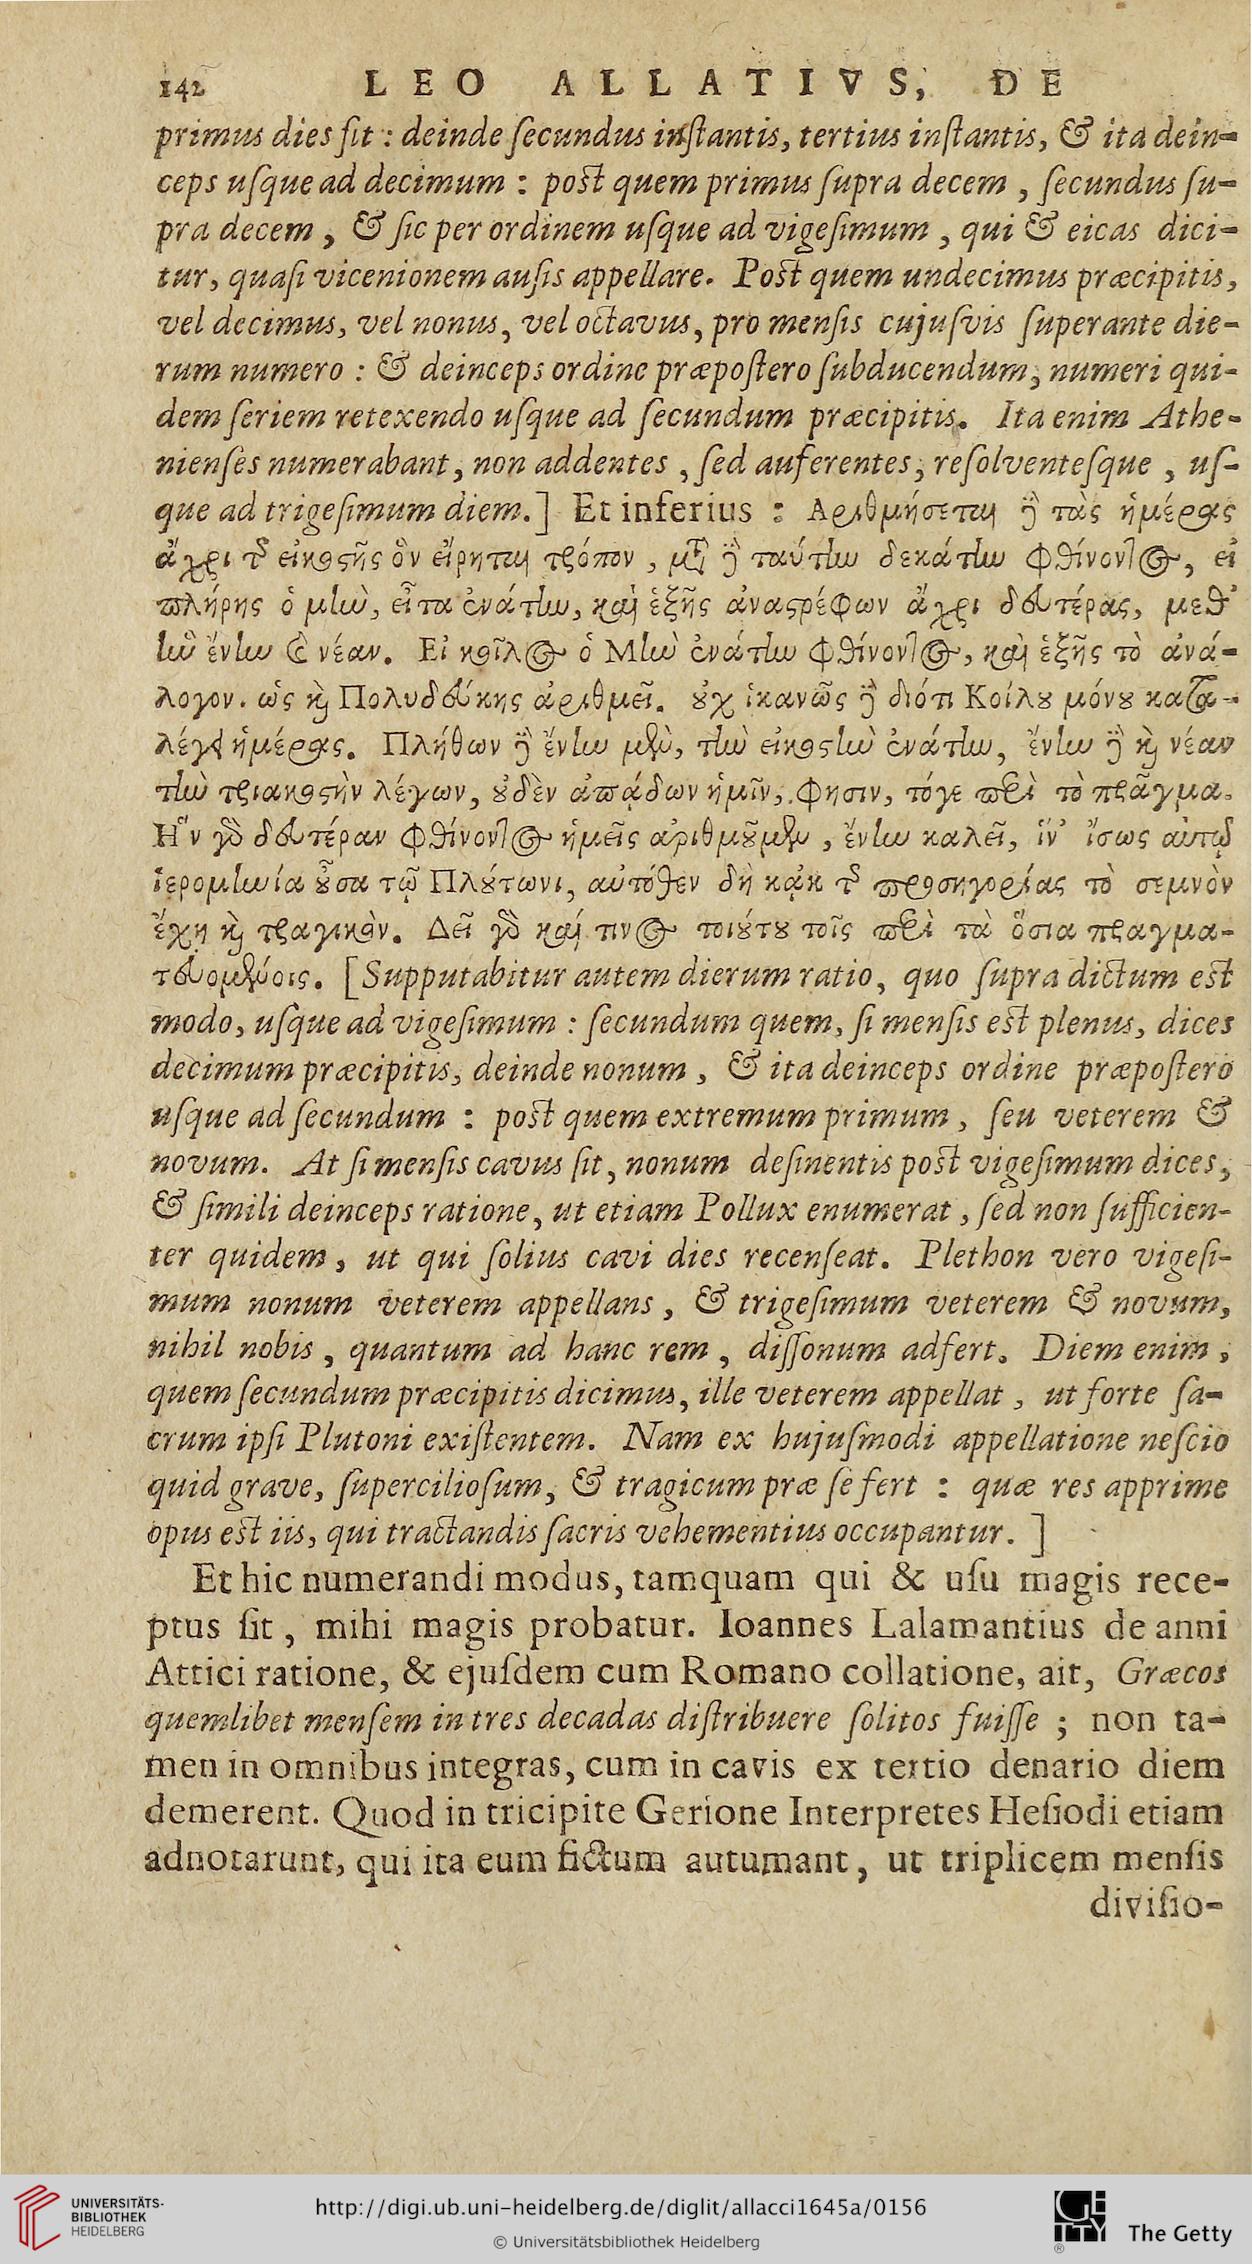 142 LEO ALLATIVS, DE
primus dies ſit : deinde ſecundus inſtantis, tertius inſtantis, & ita dein-
ceps uſque ad decimum : poſt quem primus ſupra decem , ſecundus ſu-
pra decem , & ſic per ordinem uſque ad vigeſimum , qui & eicas dici-
tur, quaſi vicenionem auſis appellare. Poſt quem undecimus præcipitis,
vel decimus, vel nonus, vel octavus, pro menſis cujuſvis ſuperante die-
rum numero : & deinceps ordine præpoſtero ſubducendum, numeri qui-
dem ſeriem retexendo uſque ad ſecundum præcipitis. Ita enim Athe-
nienſes numerabant, non addentes , ſed auferentes, reſolventeſque , uſ-
que ad trigeſimum diem.] Et inferius : Αριθμήσεται ἢ τὰς ἡμέρας
ἄχρι τ͂ εἰκοςῆς ὃν εἴρηται τρόπον , μζ ἢ ταύτην δεκάτην φθίνοντος, εἰ
πλήρης ὁ μὴν, εἶτα ἐνάτην, καὶ ἑξῆς ἀναςρέφων ἄχρι δευτέρας, μεθ᾽
ἣν ἔνην ϗ νέαν. Εἰ κοῖλος ὁ Μὴν ἐνάτην φθίνοντος, καὶ ἑξῆς τὸ ἀνά-
λογον. ὡς ϗ Πολυδεύκης ἀριθμεῖ. ȣχ ἱκανῶς ἢ διότι Κοίλȣ μόνȣ κατα-
λέγει ἡμέρας. Πλήθων ἢ ἔνην μὲν, τὴν εἰκοςὴν ἐνάτην, ἔνην ἢ ϗ νέαν
τὴν τριακοςὴν λέγων, ȣδὲν ἀπᾴδων ἡμῖν, φησιν, τόγε περὶ τὸ πρᾶγμα.
Ην γὰρ δευτέραν φθίνοντος ἡμεῖς ἀριθμȣμεν , ἔνην καλεῖ, ἵν᾽ ἴσως αὐτῷ
ἱερομηνία ȣσα τῷ Πλȣτωνι, αὐτόθεν δὴ κᾀκ τ͂ προσηγορίας τὸ σεμνὸν
ἔχῃ ϗ τραγικὸν. Δεῖ γὰρ καί τινος τοιȣτȣ τοῖς περὶ τὰ ὅσια πραγμα-
τευομένοις. [Supputabitur autem dierum ratio, quo ſupra dictum eſt
modo, uſque ad vigeſimum : ſecundum quem, ſi menſis eſt plenus, dices
decimum præcipitis, deinde nonum , & ita deinceps ordine præpoſtero
uſque ad ſecundum : poſt quem extremum primum , ſeu veterem &
novum. At ſi menſis cavus ſit, nonum deſinentis poſt vigeſimum dices,
& ſimili deinceps ratione, ut etiam Pollux enumerat , ſed non ſufficien-
ter quidem , ut qui ſolius cavi dies recenſeat. Plethon vero vigeſi-
mum nonum veterem appellans , & trigeſimum veterem & novum,
nihil nobis , quantum ad hanc rem , diſſonum adfert. Diem enim ,
quem ſecundum præcipitis dicimus, ille veterem appellat , ut forte ſa-
crum ipſi Plutoni exiſtentem. Nam ex hujuſmodi appellatione neſcio
quid grave, ſupercilioſum, & tragicum præ ſe fert : quæ res apprime
opus eſt iis, qui tractandis ſacris vehementius occupantur. ]
Et hic numerandi modus, tamquam qui & uſu magis rece-
ptus ſit , mihi magis probatur. Ioannes Lalamantius de anni
Attici ratione, & ejuſdem cum Romano collatione, ait, Græcos
quemlibet menſem in tres decadas diſtribuere ſolitos fuiſſe ; non ta-
men in omnibus integras, cum in cavis ex tertio denario diem
demerent. Quod in tricipite Gerione Interpretes Heſiodi etiam
adnotarunt, qui ita eum fictum autumant, ut triplicem menſis
diviſio-
UNIVERSITÄTS-
BIBLIOTHEK
HEIDELBERG
http://digi.ub.uni-heidelberg.de/diglit/allacci1645a/0156
© Universitätsbibliothek Heidelberg
GETTY
The Getty